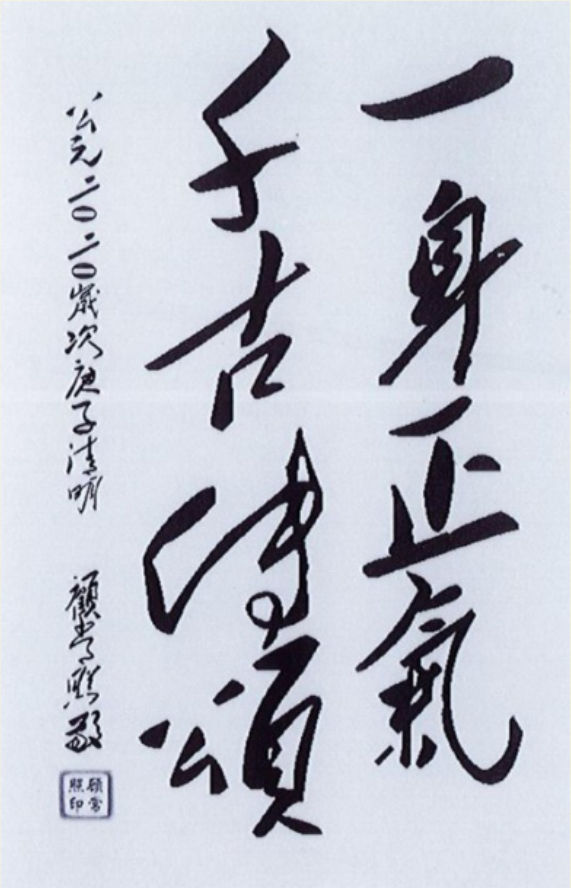 一身正氣
千古傳頌
公元二〇二〇歲次庚子清明
顧常照敬
顧常照印